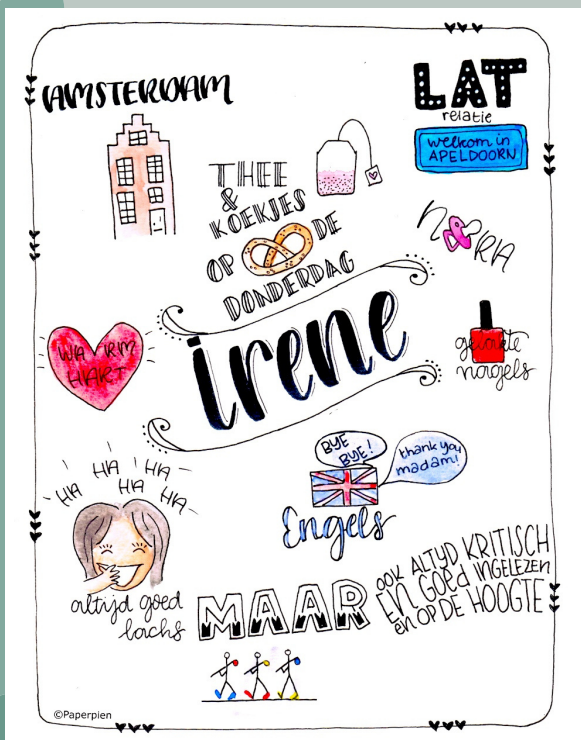 AMSTERDAM
LAT
relatie
welkom in
APELDOORN
THEE
&
KOEKJES
OP DE
DONDERDAG
NORA
WARM
HART
irene
gelakte
nagels
BYE
BYE!
thank you
madam!
Engels
HA HA HA HA HA
altijd goed
lachs
MAAR
OOK ALTYD KRITISCH
EN GOEd INGELEZEN
en OP DE HOOGTE
©Paperpien